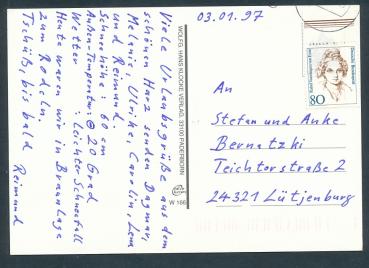 03.01.97
Viele Urlaubsgrüße aus dem
schönen Harz senden Dagmar,
Melanie, Ulrike, Carolin, Lena
und Reimund.
Schneehöhe: 60 cm
Außen-Temperatur: ⊖ 20 Grad
Wetter: Leichter Schneefall
Heute waren wir in Braunlage
zum Rodeln.
Tschüß, bis bald
Reimund
WOLFG. HANS KLOCKE VERLAG, 33100 PADERBORN
W 166
80
An
Stefan und Anke
Bernatzki
Teichtorstraße 2
24321 Lütjenburg